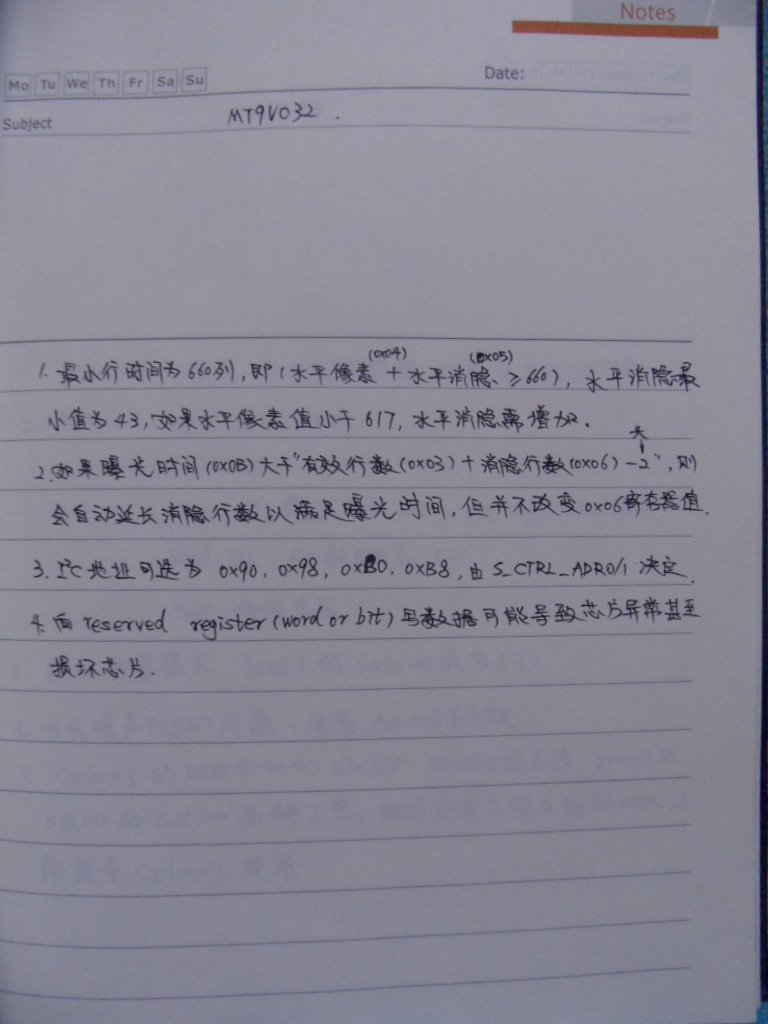 Notes
Mo Tu We Th Fr Sa Su
Date:
Subject MT9V032 .
(0x04) (0x05)
1. 最小行时间为660列,即(水平像素+水平消隐≥660),水平消隐最
小值为43,如果水平像素值小于617,水平消隐需增加.
大
2.如果曝光时间(0x0B)大于"有效行数(0x03)+消隐行数(0x06)-2",则
会自动延长消隐行数以满足曝光时间,但并不改变0x06寄存器值.
3. I²C地址可选为 0x90, 0x98, 0xB0, 0xB8, 由 S_CTRL_ADR0/1 决定.
4.向reserved register(word or bit)写数据可能导致芯片异常甚至
损坏芯片.